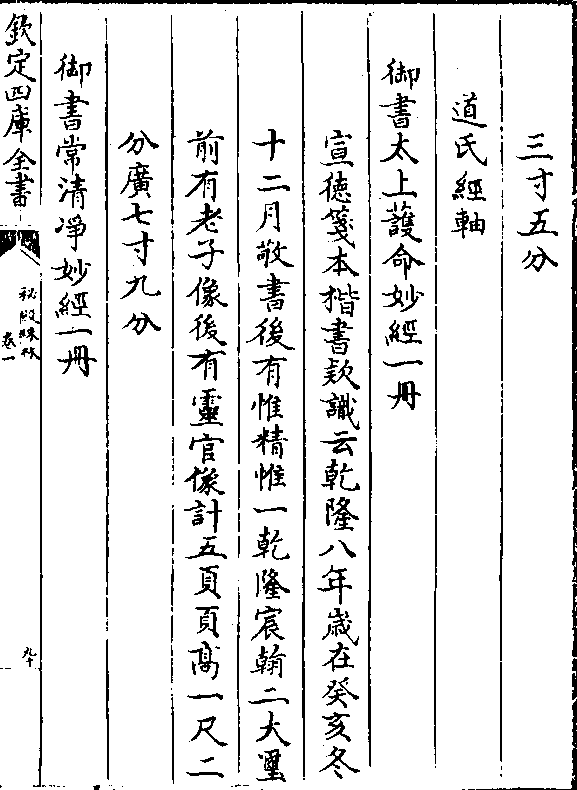 三寸五分
道氏經軸
御書太上護命妙經一冊
宣德箋本楷書欵識云乾隆八年歲在癸亥冬
十二月敬書後有惟精惟一乾隆宸翰二大璽
前有老子像後有靈官像計五頁頁高一尺二
分廣七寸九分
御書常清凈妙經一冊
欽定四庫全書
秘殿珠林
卷一
九十